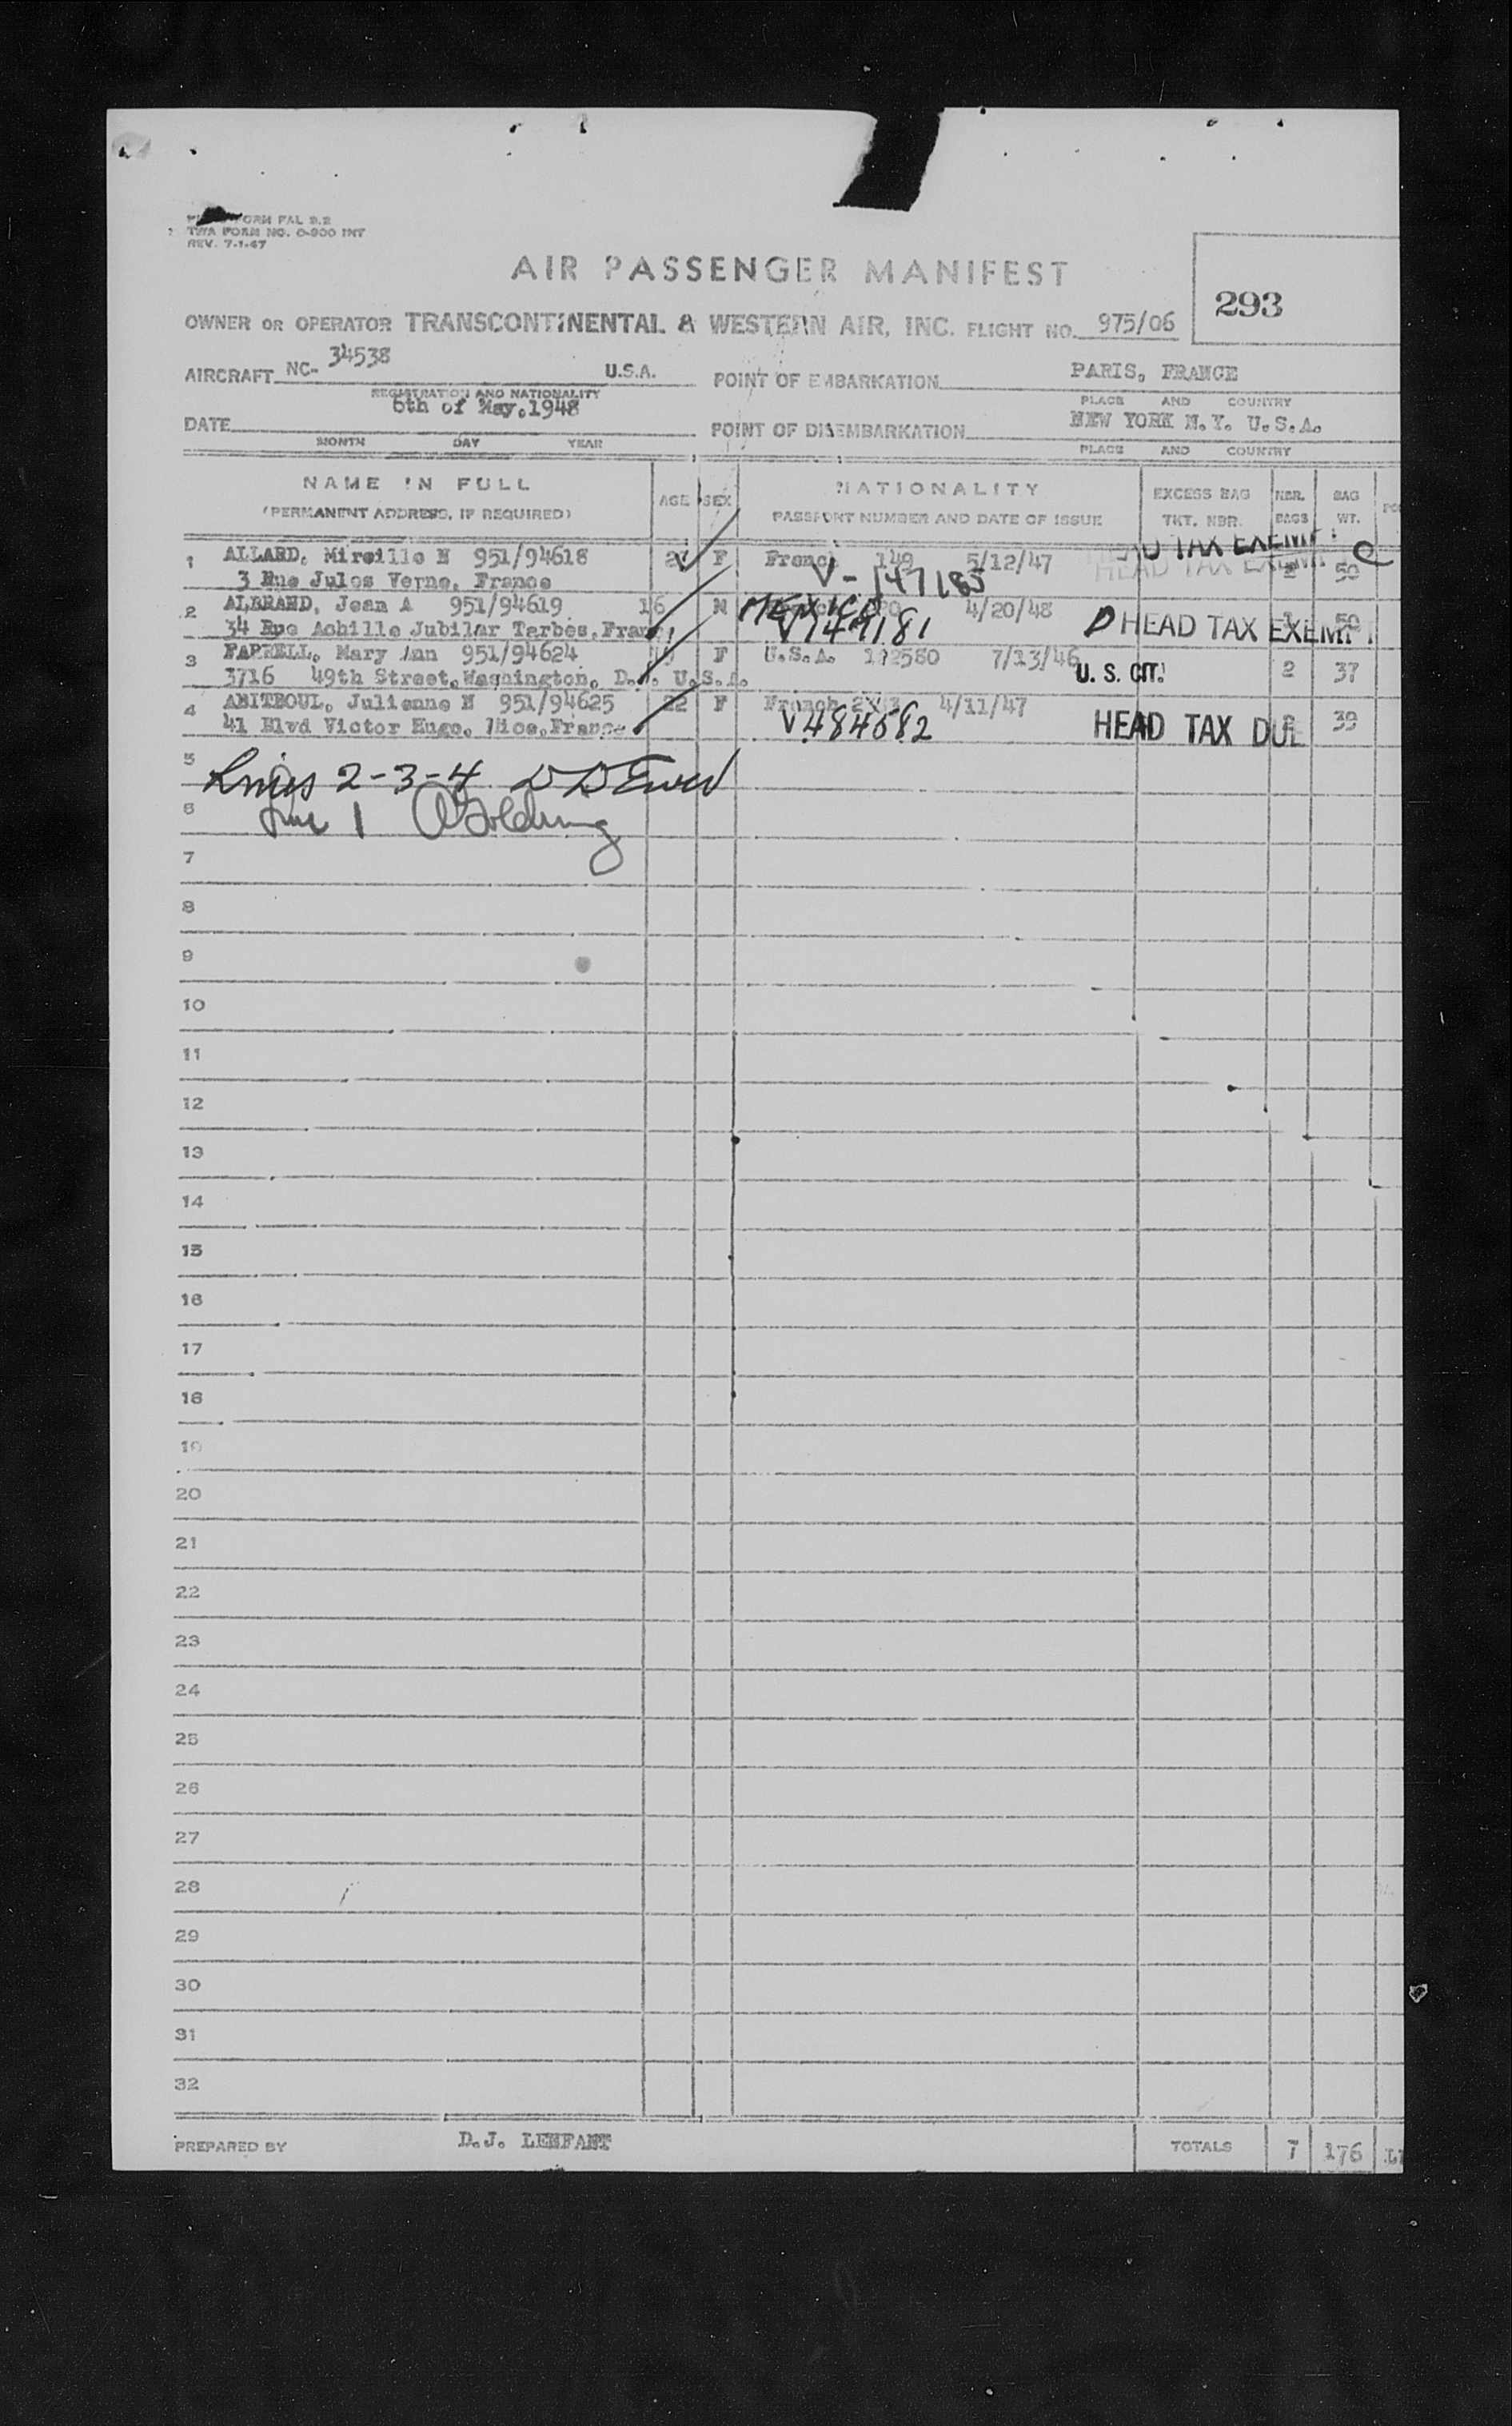 FORM FAL 2.2
TWA FORM NO. O-900 INT
REV. 7-1-47
AIR PASSENGER MANIFEST
293
OWNER OR OPERATOR TRANSCONTINENTAL & WESTERN AIR, INC. FLIGHT NO. 975/06
AIRCRAFT NC- 34538 U.S.A. POINT OF EMBARKATION PARIS, FRANCE
REGISTRATION AND NATIONALITY PLACE AND COUNTRY
DATE 6th of May,1948 POINT OF DISEMBARKATION NEW YORK N.Y. U.S.A.
MONTH DAY YEAR PLACE AND COUNTRY
NAME IN FULL AGE SEX NATIONALITY EXCESS BAG NBR. BAG
(PERMANENT ADDRESS, IF REQUIRED) PASSPORT NUMBER AND DATE OF ISSUE TKT. NBR. BAGS WT.
1 ALLARD, Mireille N 951/94618 F French 149 5/12/47 HEAD TAX EXEMPT 50
3 Rue Jules Verne, France V-147185
2 ALBRAND, Jean A 951/94619 16 M MEXICO 4/20/48 HEAD TAX EXEMPT 50
34 Rue Achille Jubilar Tarbes, France V147181
3 FARRELL, Mary Ann 951/94624 F U.S.A. 192580 7/13/46 U. S. CIT. 2 37
3716 49th Street, Washington, D.C. U.S.A.
4 ABITBOUL, Julienne N 951/94625 22 F French 4/11/47 HEAD TAX DUE 39
41 Blvd Victor Hugo, Nice, France V484682
5 Lines 2-3-4
6 Line 1 Golding
7
8
9
10
11
12
13
14
15
16
17
18
19
20
21
22
23
24
25
26
27
28
29
30
31
32
PREPARED BY D.J. LENFANT TOTALS 7 176